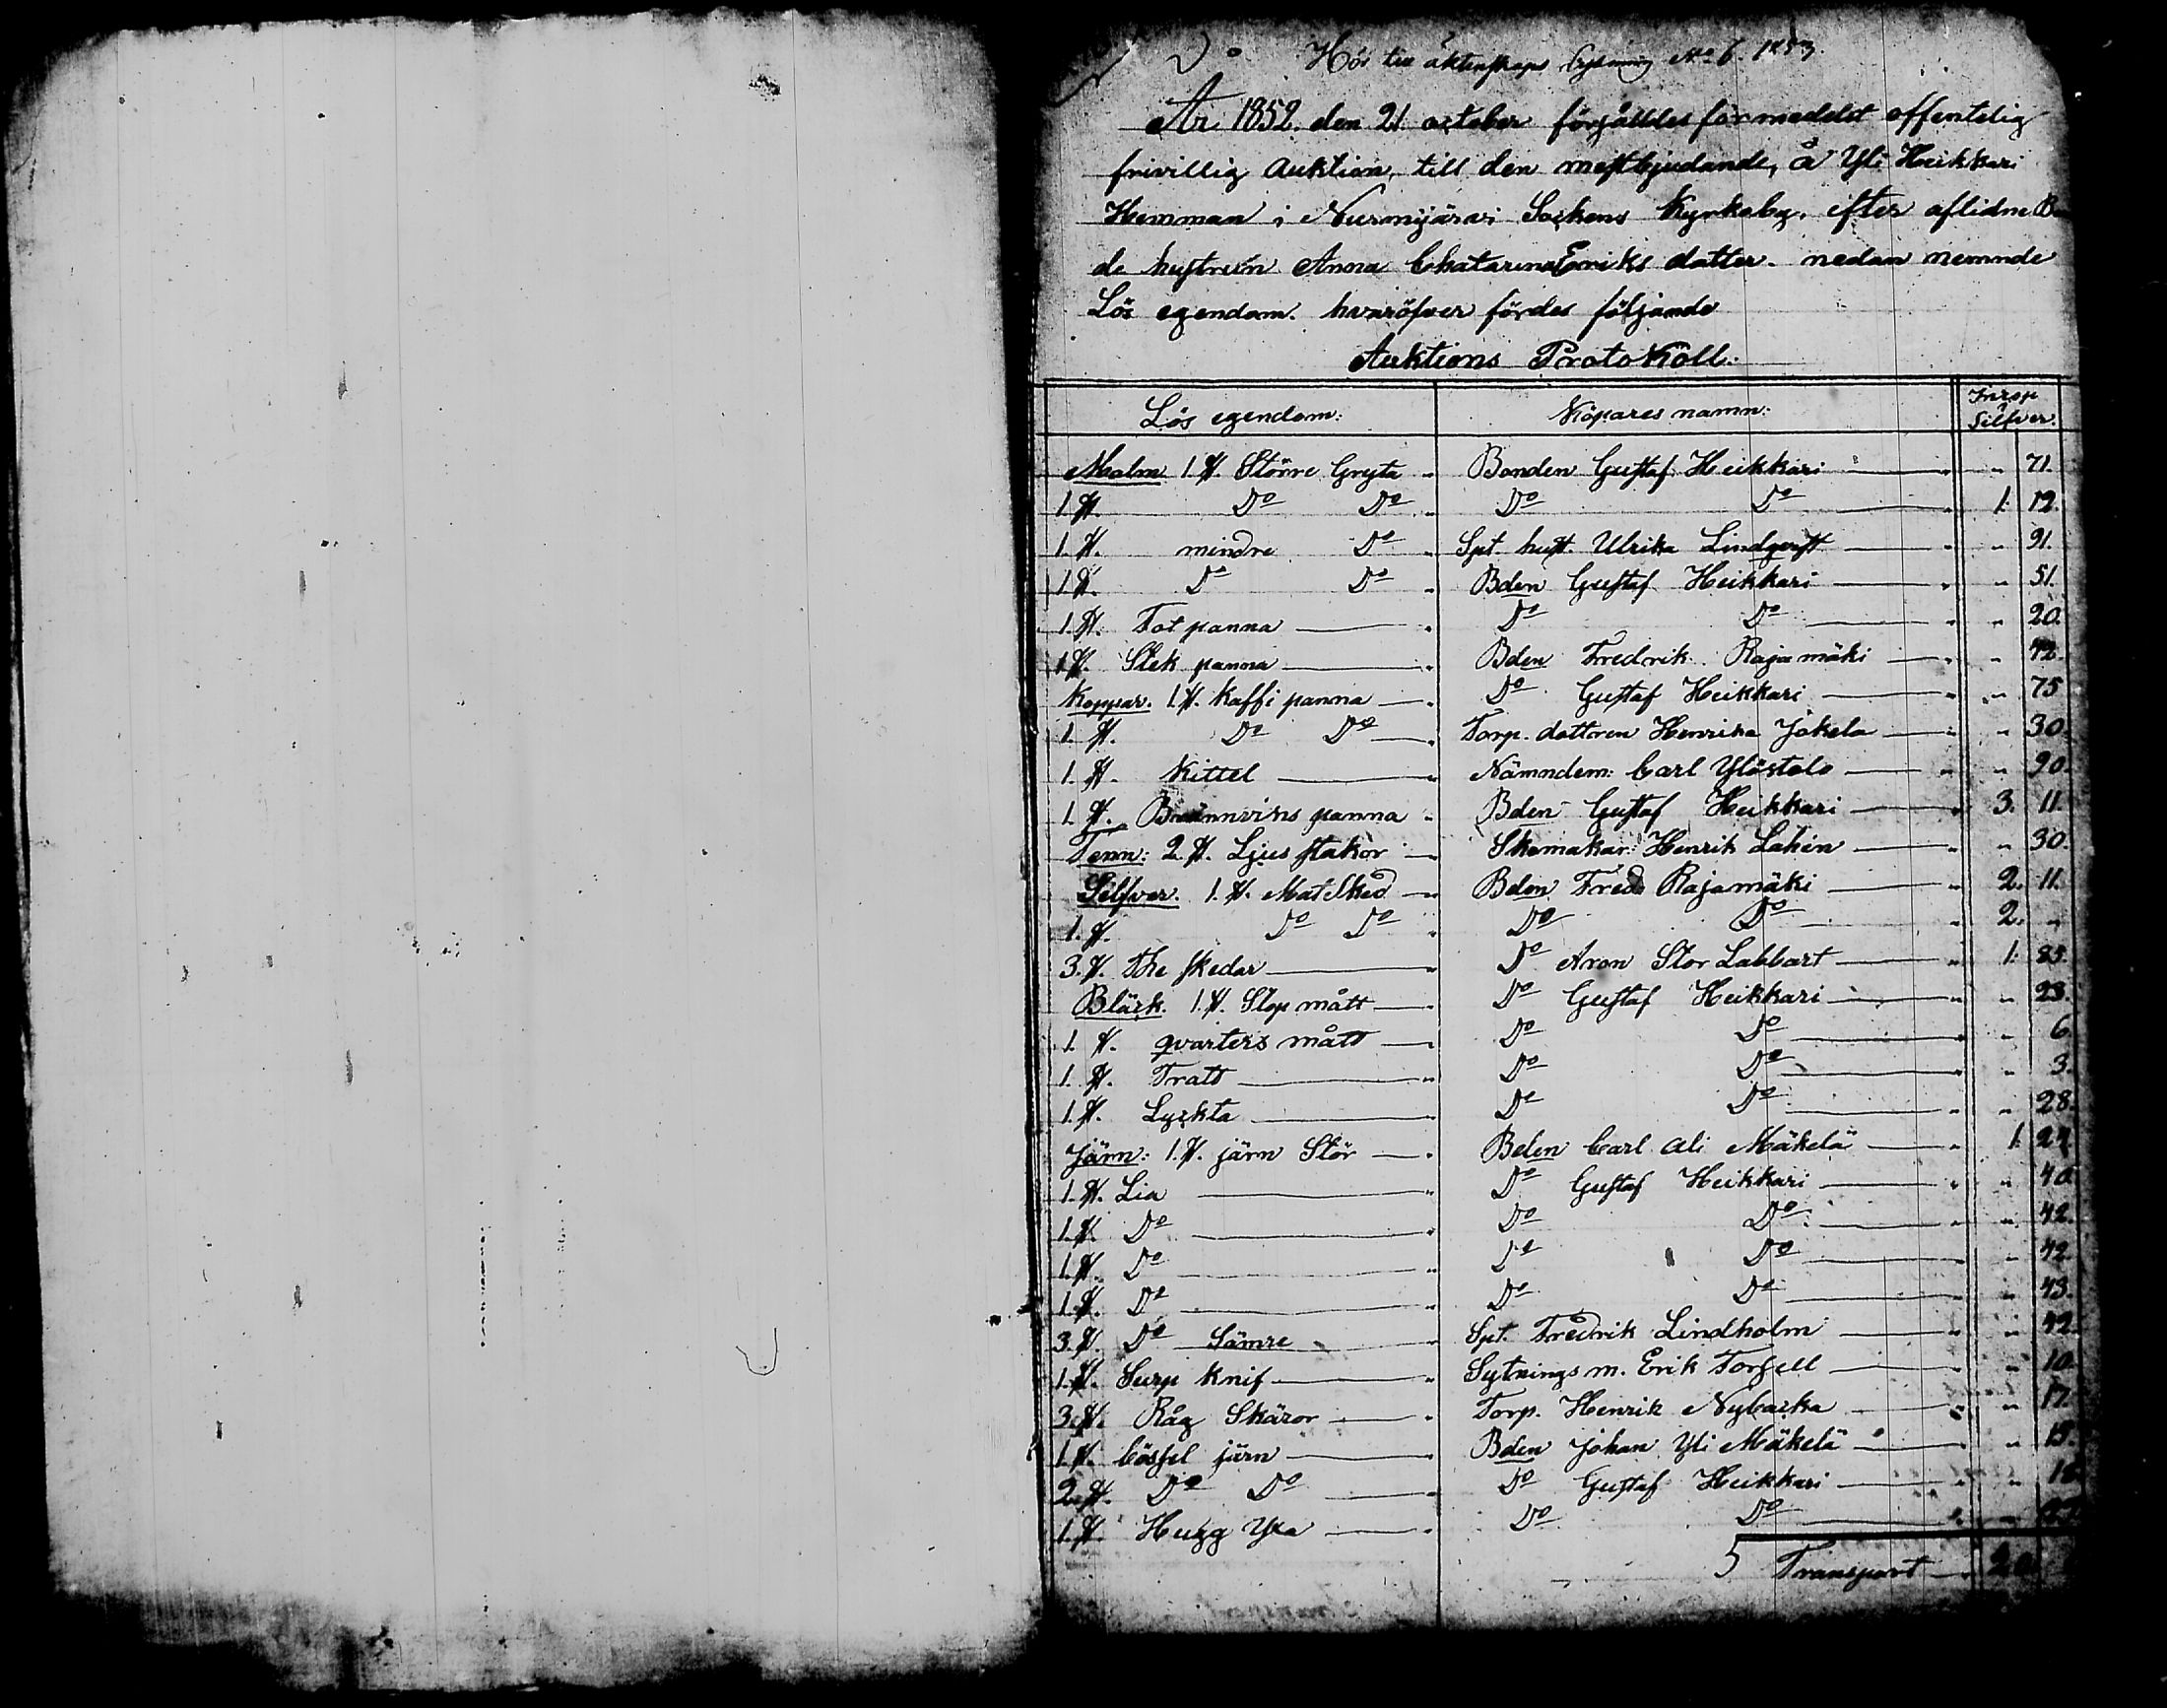 Hör till äktenskaps lysning No 6. 1853.
År 1852. den 21 october försålldes förmedelst offentelig
frivillig Auktion, till den mestbjudande, å Yli Heikkari
Hemman i Nurmijärvi Sockens Kyrkoby. efter aflidne Bon
de hustrun Anna Chatarina Eriks dotter. nedan nemnde
Lös egendom. hvaröfver fördes följande
Auktions Protokoll:
Lös egendom: Köpares namn: Inrop Silfver.
Malm 1. st. Större Gryta " Bonden Gustaf Heikkari " " 71.
1. st. Do Do " Do Do " 1. 12.
1. st. mindre Do " Spt. hust. Ulrika Lindqvist " " 91.
1. st. Do Do " Bden Gustaf Heikkari " " 51.
1. st. Fot panna " Do Do " " 20.
1. st. Stek panna " Bden Fredrik Rajamäki " " 42.
Koppar. 1. st. Kaffi panna " Do Gustaf Heikkari " " 75
1. st. Do Do " Torp. dottren Henrika Jokela " " 30
1. st. Kittel " Nämndem: Carl Ylöstalo " " 90.
1. st. Brännvins panna " Bden Gustaf Heikkari " 3. 11.
Tenn: 2. st. Ljus stakor " Skomakar: Henrik Lahin " " 30.
Silfver. 1. st. Mat Sked " Bden Fred: Rajamäki " 2. 11.
1. st. Do Do " Do Do " 2. "
3. st. the skedar " Do Aron Stor Labbart " 1. 85.
Bläck. 1. st. Stop mått " Do Gustaf Heikkari " " 23.
1. st. qvarters mått " Do Do " " 6.
1. st. Tratt " Do Do " " 3.
1. st. Lyckta " Do Do " " 28.
Järn: 1. st. järn Stör " Bden Carl Ali Mäkelä " 1. 24.
1. st. Lia " Do Gustaf Heikkari " " 40.
1. st. Do " Do Do " " 42.
1. st. Do " Do Do " " 42.
1. st. Do " Do Do " " 43.
3. st. Do Sämre " Spt. Fredrik Lindholm " " 42.
1. st. Surp knif " Sytnings m. Erik Forsell " " 10.
3. st. Råg Skäror " Torp. Henrik Nybacka " " 17.
1. st. bössel järn " Bden Johan Yli Mäkelä " " 15.
2. st. Do Do " Do Gustaf Heikkari " "
1. st. Hugg Yxa " Do Do " "
Transport